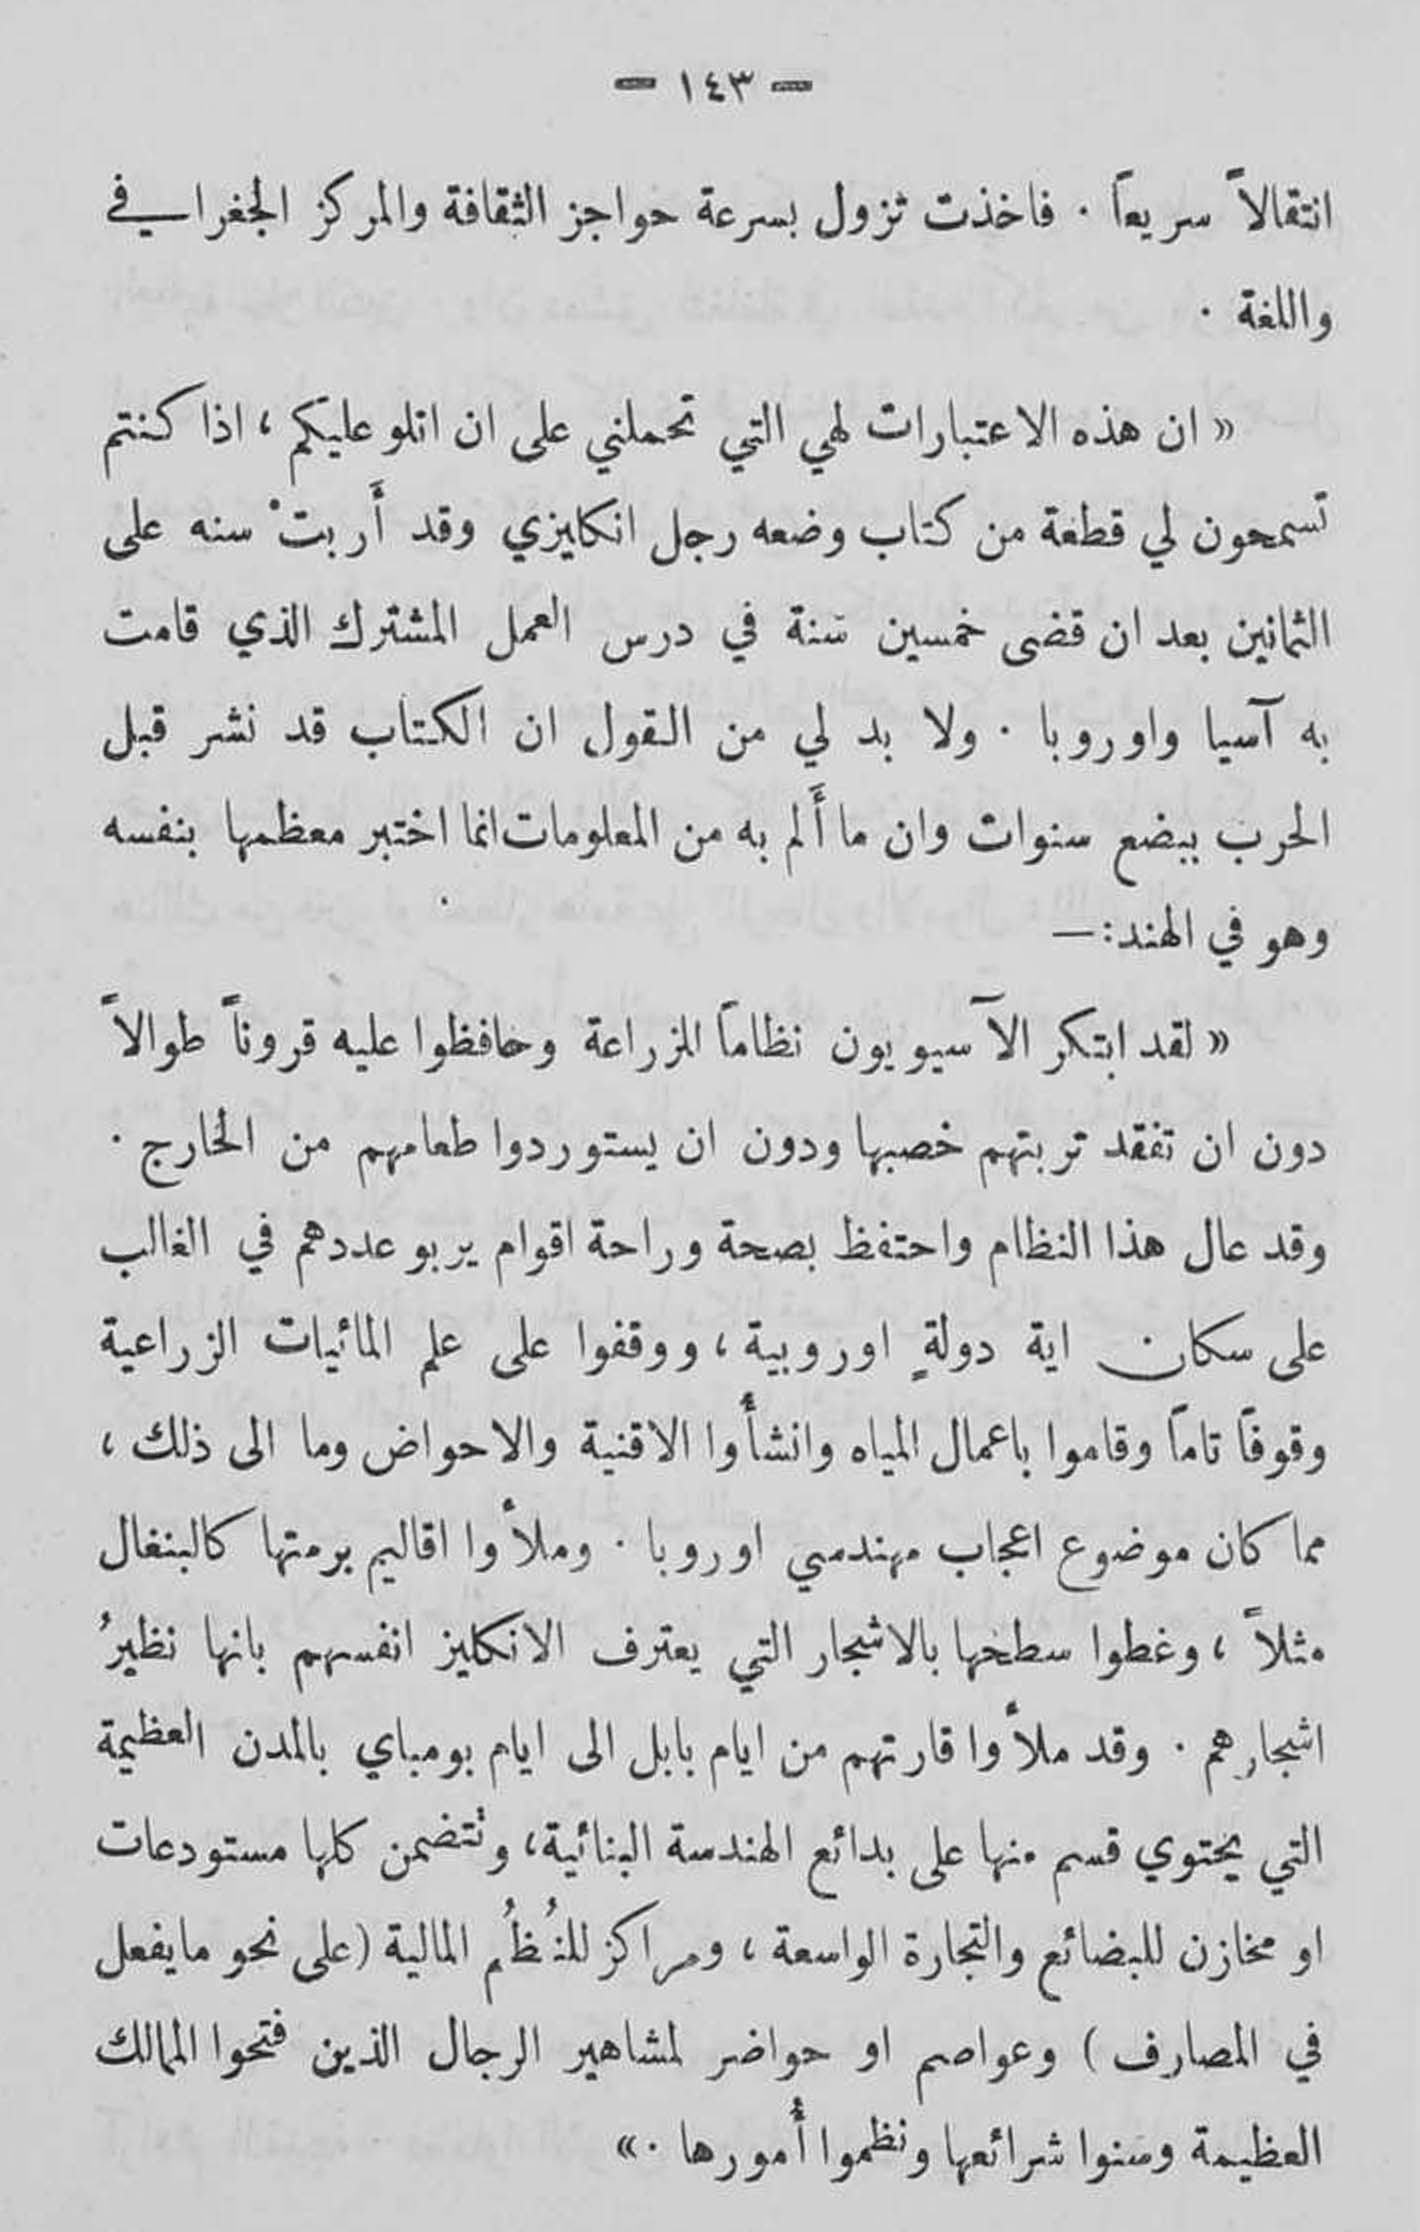 — ١٤٣ —
انتقالاً سريعاً . فاخذت تزول بسرعة حواجز الثقافة والمركز الجغرافي في
واللغة .
« ان هذه الاعتبارات لهي التي تحملني على ان اتلو عليكم ، اذا كنتم
تسمحون لي قطعة من كتاب وضعه رجل انكليزي وقد أَربتْ سنه على
الثمانين بعد ان قضى خمسين سنة في درس العمل المشترك الذي قامت
به آسيا واوروبا . ولا بد لي من القول ان الكتاب قد نشر قبل
الحرب ببضع سنوات وان ما أَلم به من المعلومات انما اختبر معظمها بنفسه
وهو في الهند :—
« لقد ابتكر الآسيويون نظاماً للزراعة وحافظوا عليه قروناً طوالاً
دون ان تفقد تربتهم خصبها ودون ان يستوردوا طعامهم من الخارج .
وقد عال هذا النظام واحتفظ بصحة وراحة اقوام يربو عددهم في الغالب
على سكان اية دولةٍ اوروبية ، ووقفوا على علم المائيات الزراعية
وقوفاً تاماً وقاموا باعمال المياه وانشأوا الاقنية والاحواض وما الى ذلك ،
مما كان موضوع اعجاب مهندسي اوروبا . وملأوا اقاليم برمتها كالبنغال
مثلاً ، وغطوا سطحها بالاشجار التي يعترف الانكليز انفسهم بانها نظيرُ
اشجارهم . وقد ملأوا قارتهم من ايام بابل الى ايام بومباي بالمدن العظيمة
التي يحتوي قسم منها على بدائع الهندسة البنائية ، وتتضمن كلها مستودعات
او مخازن للبضائع والتجارة الواسعة ، ومراكز للنُظُم المالية (على نحو ما يفعل
في المصارف ) وعواصم او حواضر لمشاهير الرجال الذين فتحوا الممالك
العظيمة وسنوا شرائعها ونظموا أُمورها .»